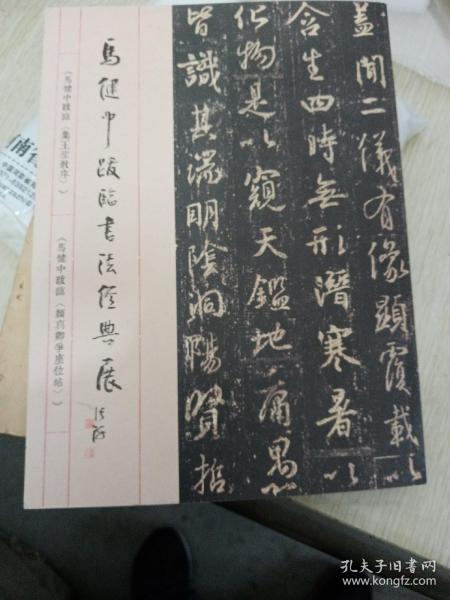 蓋聞二儀有像顯覆載以
含生四時無形潛寒暑以
化物是以窺天鑑地庸愚
皆識其端明陰洞陽賢哲
馬健中跋臨書法經典展
《馬健中跋臨〈集王聖教序〉》
《馬健中跋臨〈顏真卿爭座位帖〉》
孔夫子旧书网
www.kongfz.com